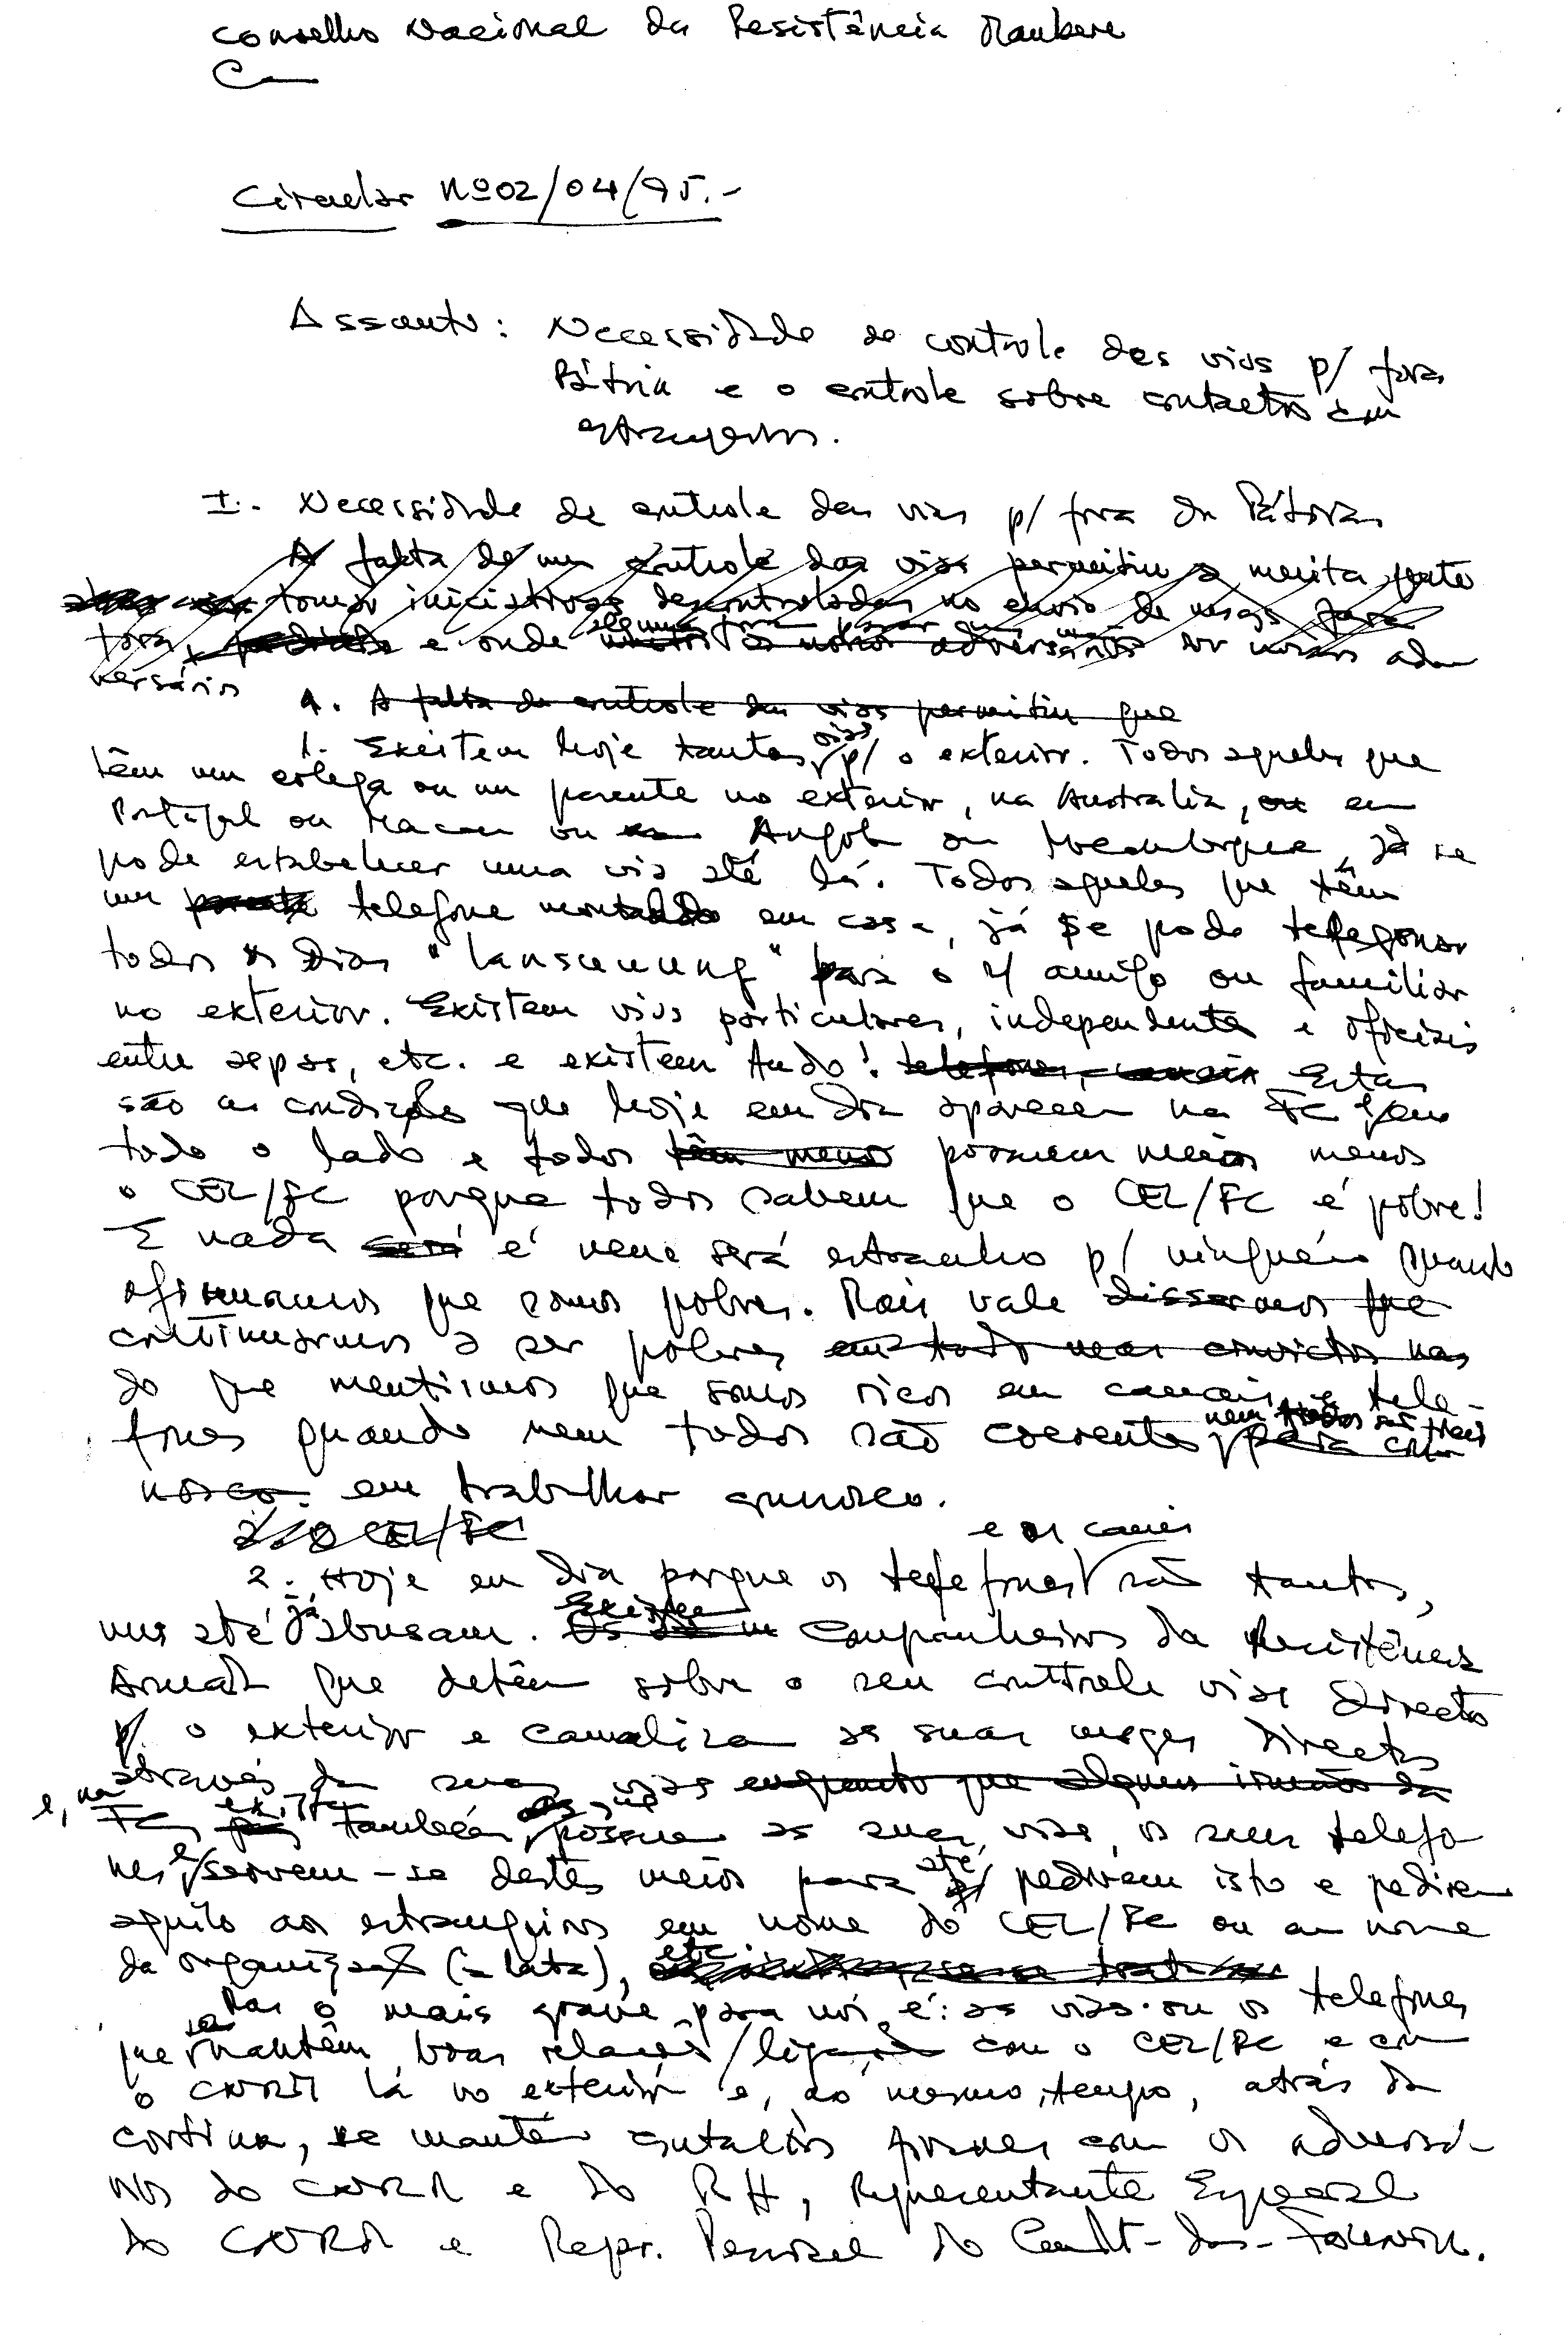 Conselho Nacional da Resistência Maubere
Circular Nº02/04/95.-
Assunto: Necessidade de controle das vias p/ fora
Pátria e o controle sobre contactos com
estrangeiros.
I.- Necessidade de controle das vias p/ fora da Pátria
A falta de um controle das vias permitiu a muita gente
tomar iniciativas descontroladas no envio de msgs para
fora, e onde
versários
1. A falta de controle das vias permitiu que
1. Existem hoje tantas vias p/ o exterior. Todos aqueles que
têm um colega ou um parente no exterior, na Australia, ou em
Portugal ou Macau ou Angola ou Mocambique, já se
pode estabelecer uma via até lá. Todos aqueles que têm
um telefone montado em casa, já se pode telefonar
todos os dias "lansuuung" para o s/ amigo ou familiar
no exterior. Existem vias particulares, independentes e oficiais
entre aspas, etc. e existem tudo! Estas
são as condições que hoje em dia aparecem na FC e em
todo o lado e todos têm menos possuem meios menos
o CEL/FC porque todos sabem que o CEL/FC é pobre!
E nada será é nem será estranho p/ ninguém quando
afirmamos que somos pobres. Mais vale dissermos que
continuarmos a ser pobres convictos nas
do que mentirmos que somos ricos em canais e tele-
fones quando nem todos são coerentes nem todos são fieis para con
nosco. em trabalhar connosco.
2. O CEL/FC
2. Hoje em dia porque os telefones e os canais são tantos,
uns até já abusam. Existem Companheiros da Resistência
Armada que detêm sobre o seu controle vias directas
p/ o exterior e canaliza as suas msgs directas
através das suas vias enquanto que alguns irmãos da
e, na FC, existem também possuem as suas vias, os seus telefo
nes e servem-se destes meios para até pedirem isto e pedirem
aquilo aos estrangeiros em nome do CEL/FC ou em nome
da organização (a lata), etc.
Mas o mais grave para nós é: as vias ou os telefones
que se mantêm boas relações/ligação com o CEL/FC e com
o CNRM lá no exterior e, ao mesmo tempo, atrás da
cortina, se mantêm contactos com os adversá-
rios do CNRM e do RH, Representante Especial
do CNRM e Repr. Pessoal do Cmdt-das-Falintil.